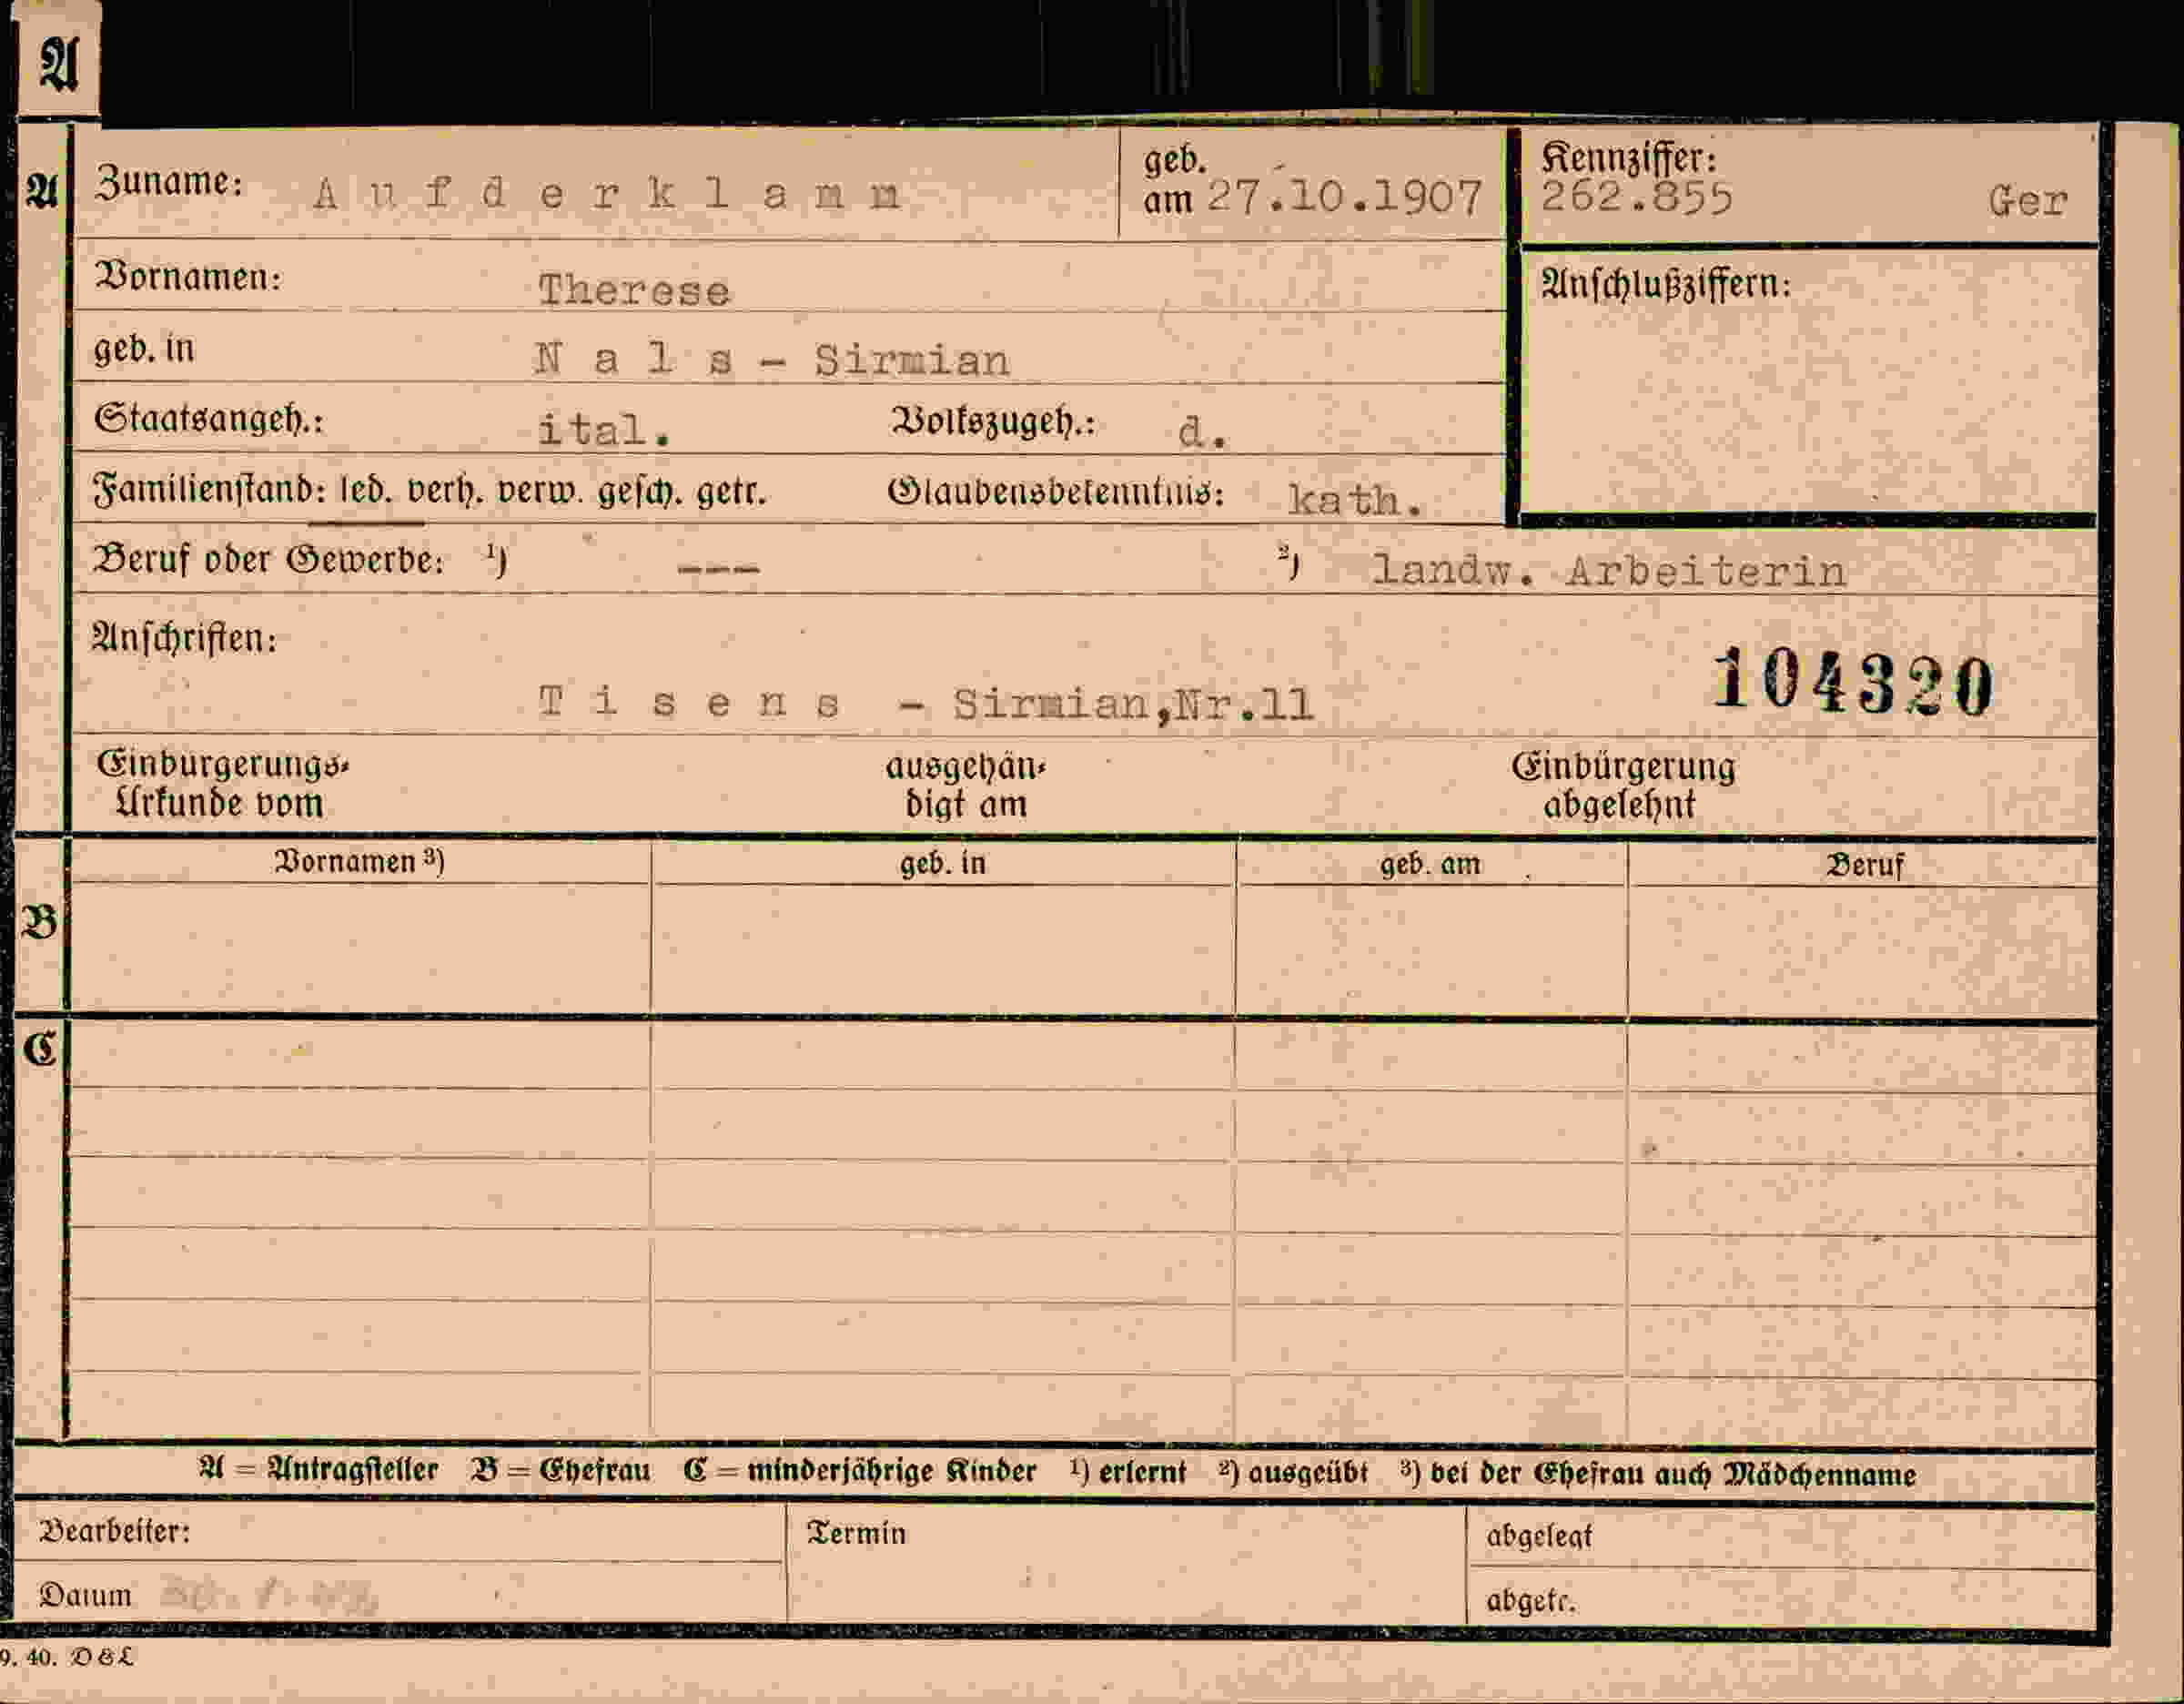 A
A Zuname: Aufderklamm geb. am 27.10.1907 Kennziffer: 262.855 Ger
Vornamen: Therese Anschlußziffern:
geb. in Nals - Sirmian
Staatsangeh.: ital. Volkszugeh.: d.
Familienstand: led. verh. verw. gesch. getr. Glaubensbekenntnis: kath.
Beruf oder Gewerbe: ¹) --- ²) landw. Arbeiterin
Anschriften:
104320
Tisens - Sirmian,Nr.11
Einbürgerungs- ausgehän- Einbürgerung
Urkunde vom digt am abgelehnt
Vornamen ³) geb. in geb. am Beruf
B
C
A = Antragsteller B = Ehefrau C = minderjährige Kinder ¹) erlernt ²) ausgeübt ³) bei der Ehefrau auch Mädchenname
Bearbeiter: Termin abgelegt
Datum abgetr.
9. 40. D&L